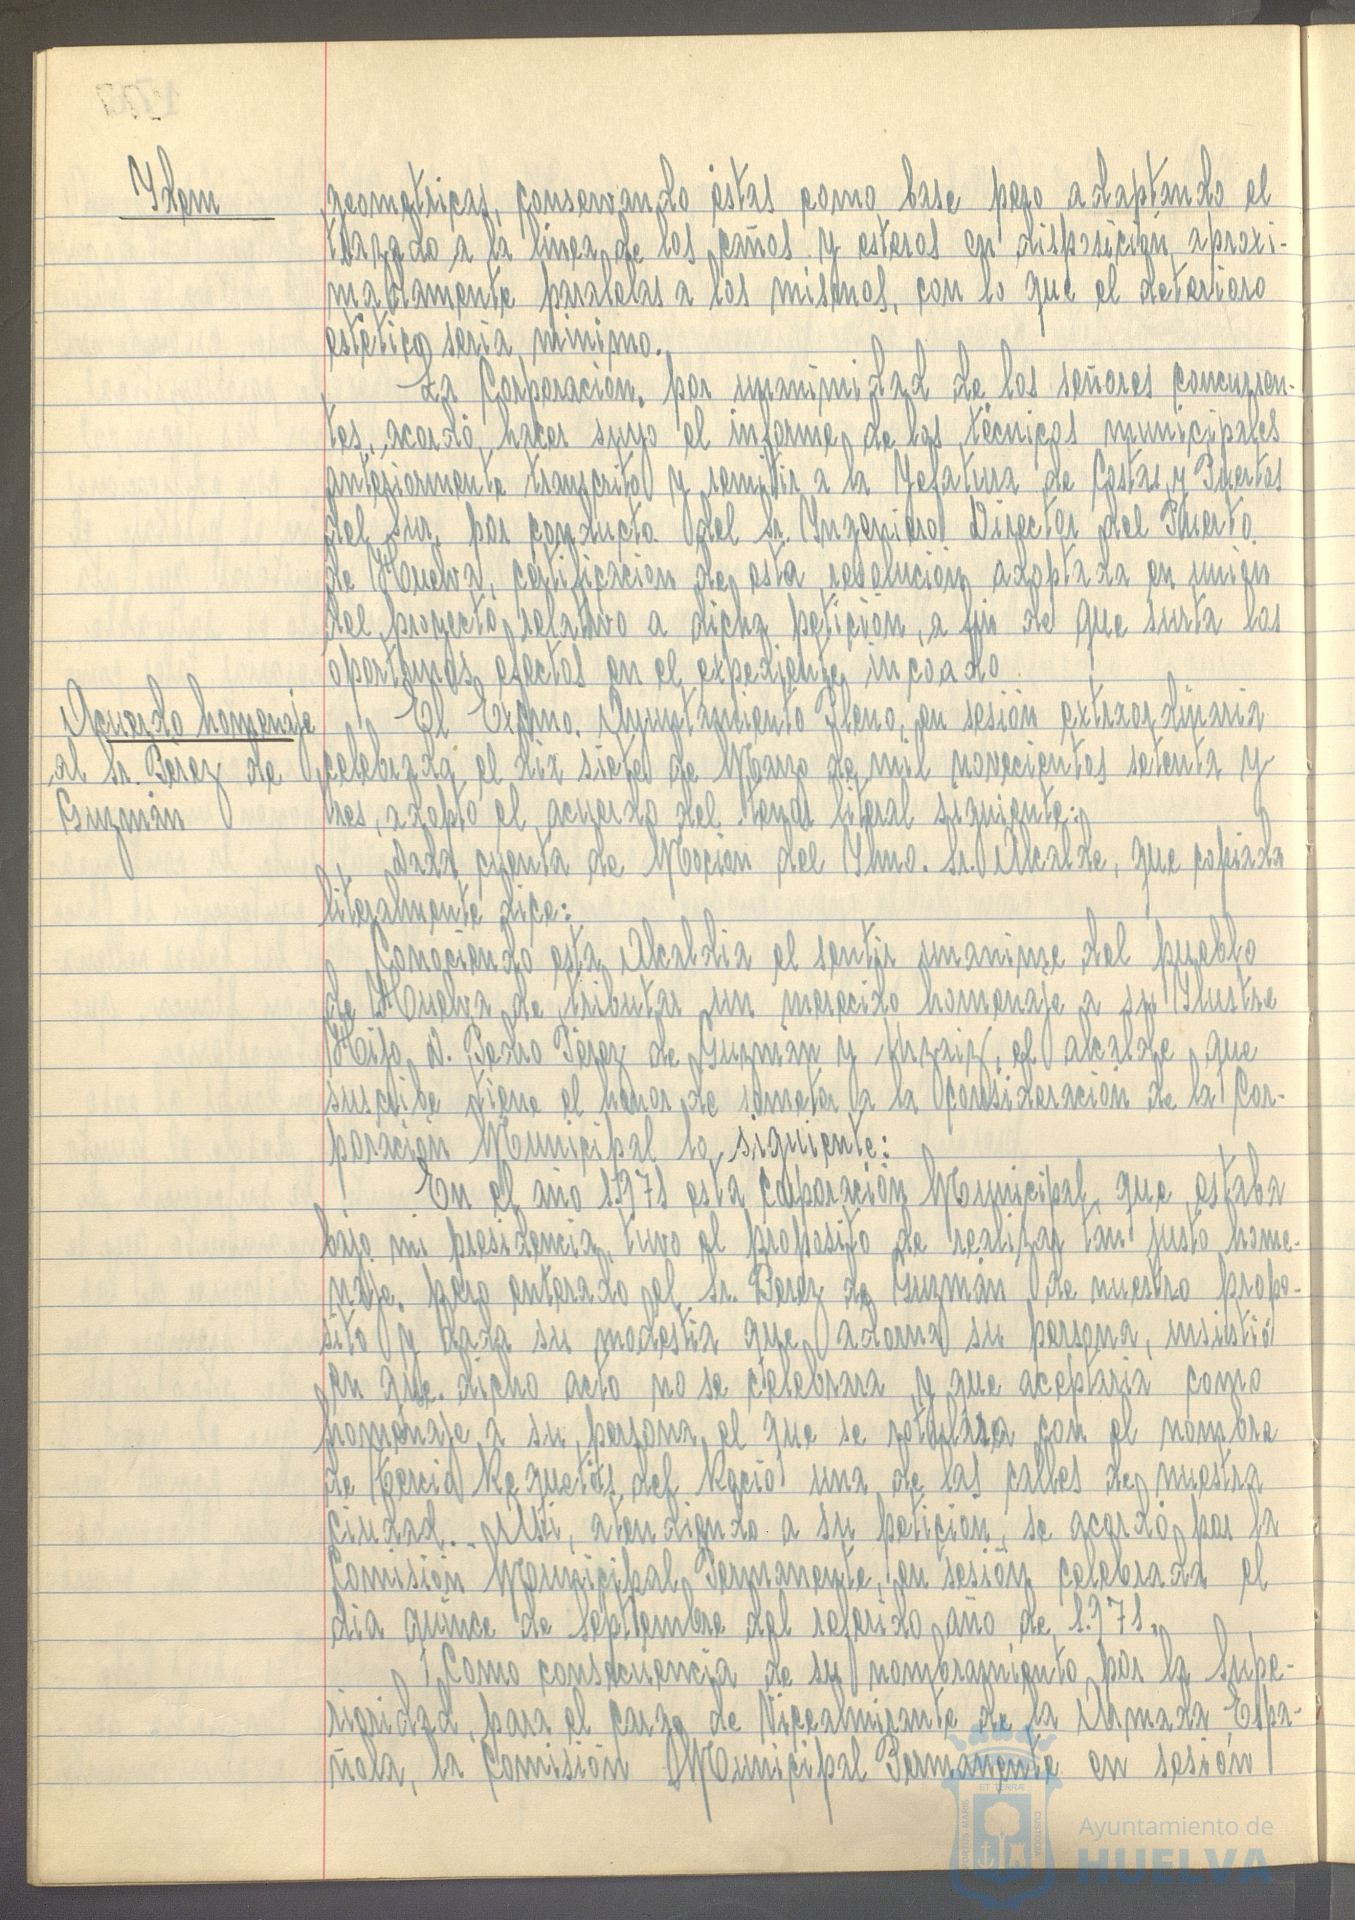 Idem
geometricas, conservando éstas como base pero adaptando el
trazado a la linea de los caños y esteros en disposición aproxi-
madamente paralelas a los mismos, con lo que el deterioro
estético seria minimo.
La Corporación, por unanimidad de los señores concurren-
tes, acordó hacer suyo el informe de los técnicos municipales
anteriormente transcrito y remitir a la Jefatura de Costas y Puertos
del Sur, por conducto del Sr. Ingeniero Director del Puerto
de Huelva, certificación de esta resolución adoptada en unión
del proyecto relativo a dicha petición, a fin de que surta los
oportunos efectos en el expediente incoado
Acuerdo homenaje
al Sr. Pérez de
Guzmán
El Excmo. Ayuntamiento Pleno, en sesión extraordinaria
celebrada el dia siete de Marzo de mil novecientos setenta y
tres, adoptó el acuerdo del tenor literal siguiente:
Dada cuenta de Moción del Iltmo. Sr. Alcalde, que copiada
literalmente dice:
Conociendo esta Alcaldia el sentir unanime del pueblo
de Huelva de tributar un merecido homenaje a su Ilustre
Hijo D. Pedro Pérez de Guzmán y Urzaiz, el alcalde que
suscribe tiene el honor de someter a la consideración de la Cor-
poración Municipal lo siguiente:
En el año 1.971 esta Corporación Municipal, que estaba
bajo mi presidencia, tuvo el proposito de realizar tan justo home-
naje, pero enterado el Sr. Perez de Guzmán de nuestro propo-
sito y dada su modestia que adorna su persona, insistió
en que dicho acto no se celebrara y que aceptaria como
homenaje a su persona el que se rotulara con el nombre
de Tercio Requetés del Rocio una de las calles de nuestra
ciudad. Asi, atendiendo a su petición, se acordó por la
Comisión Municipal Permanente, en sesión celebrada el
dia quince de septiembre del referido año de 1.971.
Como consecuencia de su nombramiento por la Supe-
rioridad, para el cargo de Vicealmirante de la Armada Espa-
ñola, la Comisión Municipal Permanente en sesión
PORTUS MARIS ET TERRÆ CUSTODIA
Ayuntamiento de
HUELVA